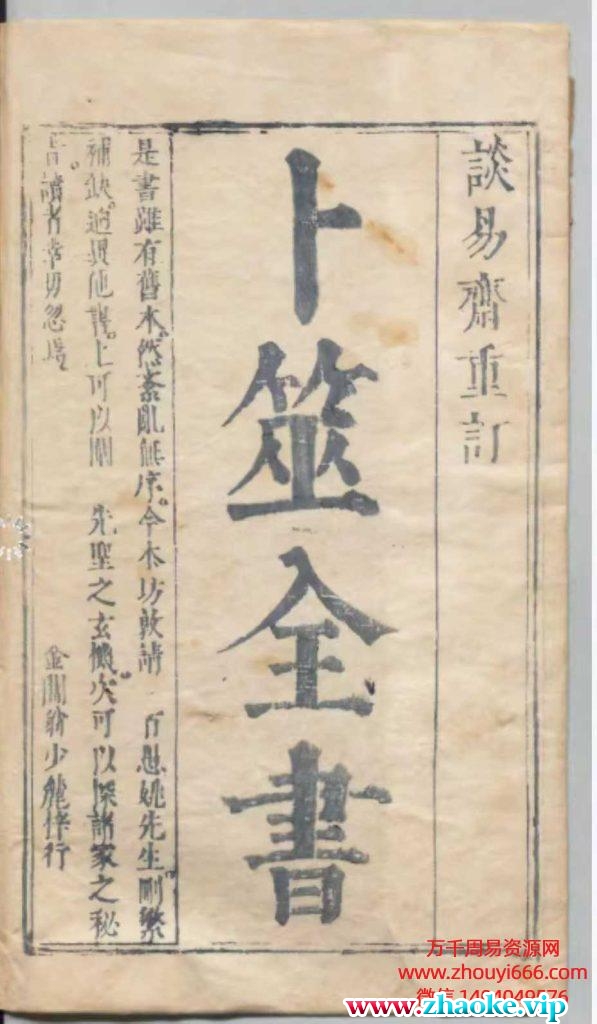 談易齋重訂
卜筮全書
是書雖有舊本然紊亂無序今本坊敦請 百愚姚先生刪繁
補缺逈異他書上可以闡 先聖之玄機次可以探諸家之秘
旨讀者幸毋忽焉
金閶翁少麓梓行
万千周易资源网
www.zhouyi666.com
微信 1494049576
www.zhaoke.vip